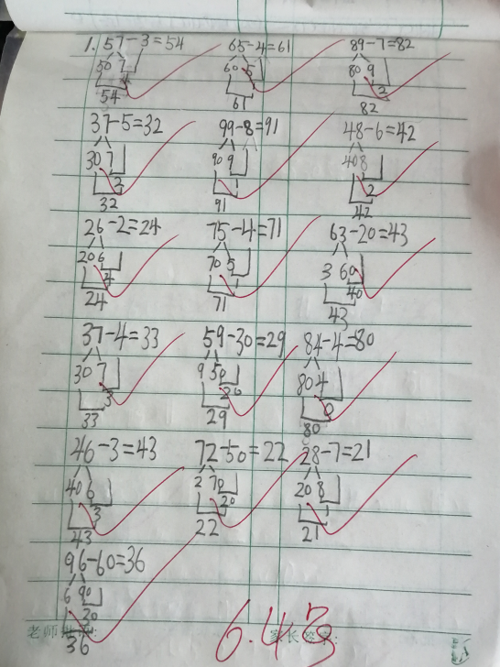 1. 57-3=54 65-4=61 89-7=82
50 7 60 5 80 9
4 1 2
54 61 82
37-5=32 99-8=91 48-6=42
30 7 90 9 40 8
2 1 2
32 91 42
26-2=24 75-4=71 63-20=43
20 6 70 5 3 60
4 1 40
24 71 43
37-4=33 59-30=29 84-4=80
30 7 9 50 80 4
3 20 0
33 29 80
46-3=43 72-50=22 28-7=21
40 6 2 70 20 8
3 20 1
43 22 21
96-60=36
6 90
30
36
老师 家长签名:
6.4